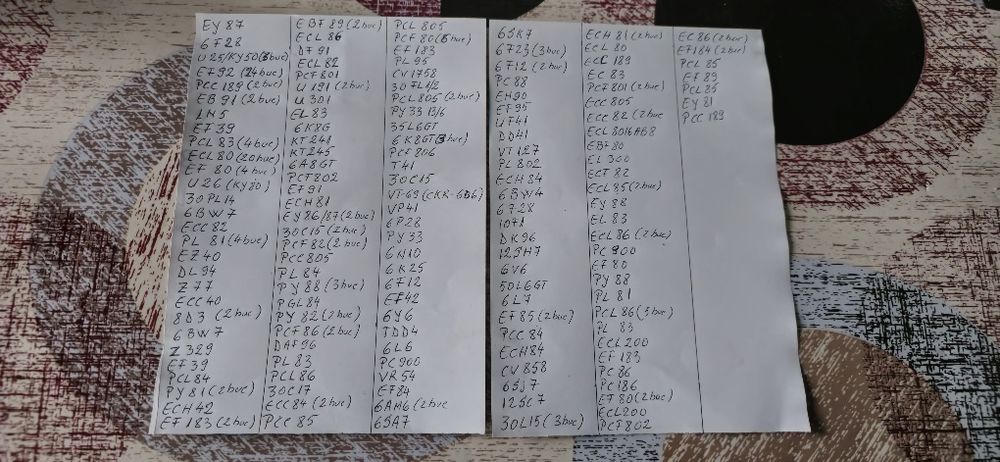 EY 87
6F28
U25/KY50(3buc)
EF92 (24buc)
PCC 189 (4buc)
EB 91 (2buc)
1N5
EF39
PCL 83 (4buc)
ECL 80 (20buc)
EF 80 (4buc)
U 26 (KY80)
30PL14
6BW7
ECC 82
PL 81 (4buc)
EZ40
DL94
Z77
ECC 40
8D3 (2buc)
6BW7
Z 329
EF39
PCL84
PY 81 (2buc)
ECH 42
EF 183 (2buc)
EBF 89 (2buc)
ECL 86
DF 91
ECL 82
PCF801
U 191 (2buc)
U 301
EL 83
6K8G
KT 241
KT245
6A8GT
PCF802
EF91
ECH 81
EY 86/87 (2buc)
30C15 (2buc)
PCF 82 (2buc)
PCC 805
PL 84
PY 88 (3buc)
PGL84
PY 82 (2buc)
PCF 86 (2buc)
DAF96
PL 83
PCL 86
30C17
ECC 84 (2buc)
PCC 85
PCL 805
PCF 80 (5buc)
EF 183
PL 95
CV1758
30FL1/2
PCL805 (2buc)
PY33 13/6
35L6GT
6K8GT(3buc)
PCF 806
T41
30C15
VT-69 (CKR-6D6)
VP41
6P28
PY 33
6N10
6K25
6F12
EF42
6Y6
TDD4
6L6
PC900
VR54
EF84
6AM6 (2buc
6SA7
6SK7
6F23 (3buc)
6F12 (2buc)
PC 88
EH90
EF95
UF41
DD41
VT 127
PL 802
ECH 84
6BW4
6F28
10F1
DK 96
12SH7
6V6
50L6GT
6L7
EF 85 (2buc)
PCC 84
ECH84
CV 858
6SJ7
12SC7
30L15 (3buc)
ECH 81 (2buc)
ECL 80
ECC 189
EC 83
PCF 801 (2buc)
ECC 805
ECC 82 (2buc
ECL 801 6AB8
EBF80
EL 300
ECF 82
ECL 85 (2buc)
EY 88
EL 83
ECL 86 (2buc)
PC 900
EF 80
PY 88
PL 81
PCL 86 (5buc)
PL 83
ECL200
EF 183
PC 86
PC 186
EF 80 (2buc)
ECL200
PCF 802
EC 86 (2buc)
EF184 (2buc)
PCL 85
EF 89
PCL 85
EY 81
PCC 189